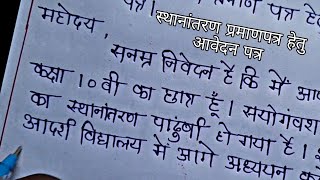 पत्र।
पत्र हे
महोदय,
स्थानांतरण प्रमाणपत्र हेतु
आवेदन पत्र
सनम्र निवेदन है कि मैं आप
कक्षा 10 वी का छात्र हूँ। सयोगवश
का स्थानांतरण पांढुर्णा हो गया है।
आदर्श विद्यालय में आगे अध्ययन कर